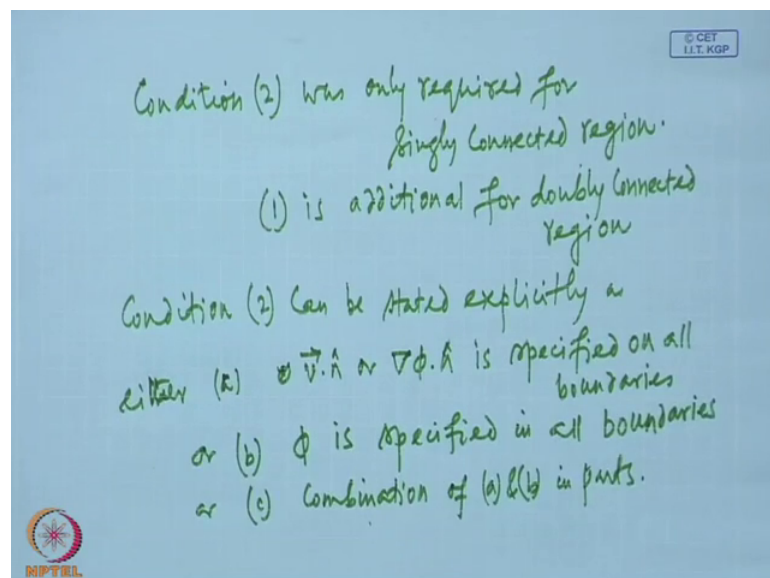 © CET
I.I.T. KGP
Condition (2) was only required for
singly connected region.
(1) is additional for doubly connected
region
Condition (2) can be stated explicitly as
either (a) v⃗.n̂ or ∇ϕ.n̂ is specified on all
boundaries
or (b) ϕ is specified in all boundaries
or (c) combination of (a) & (b) in parts.
NPTEL